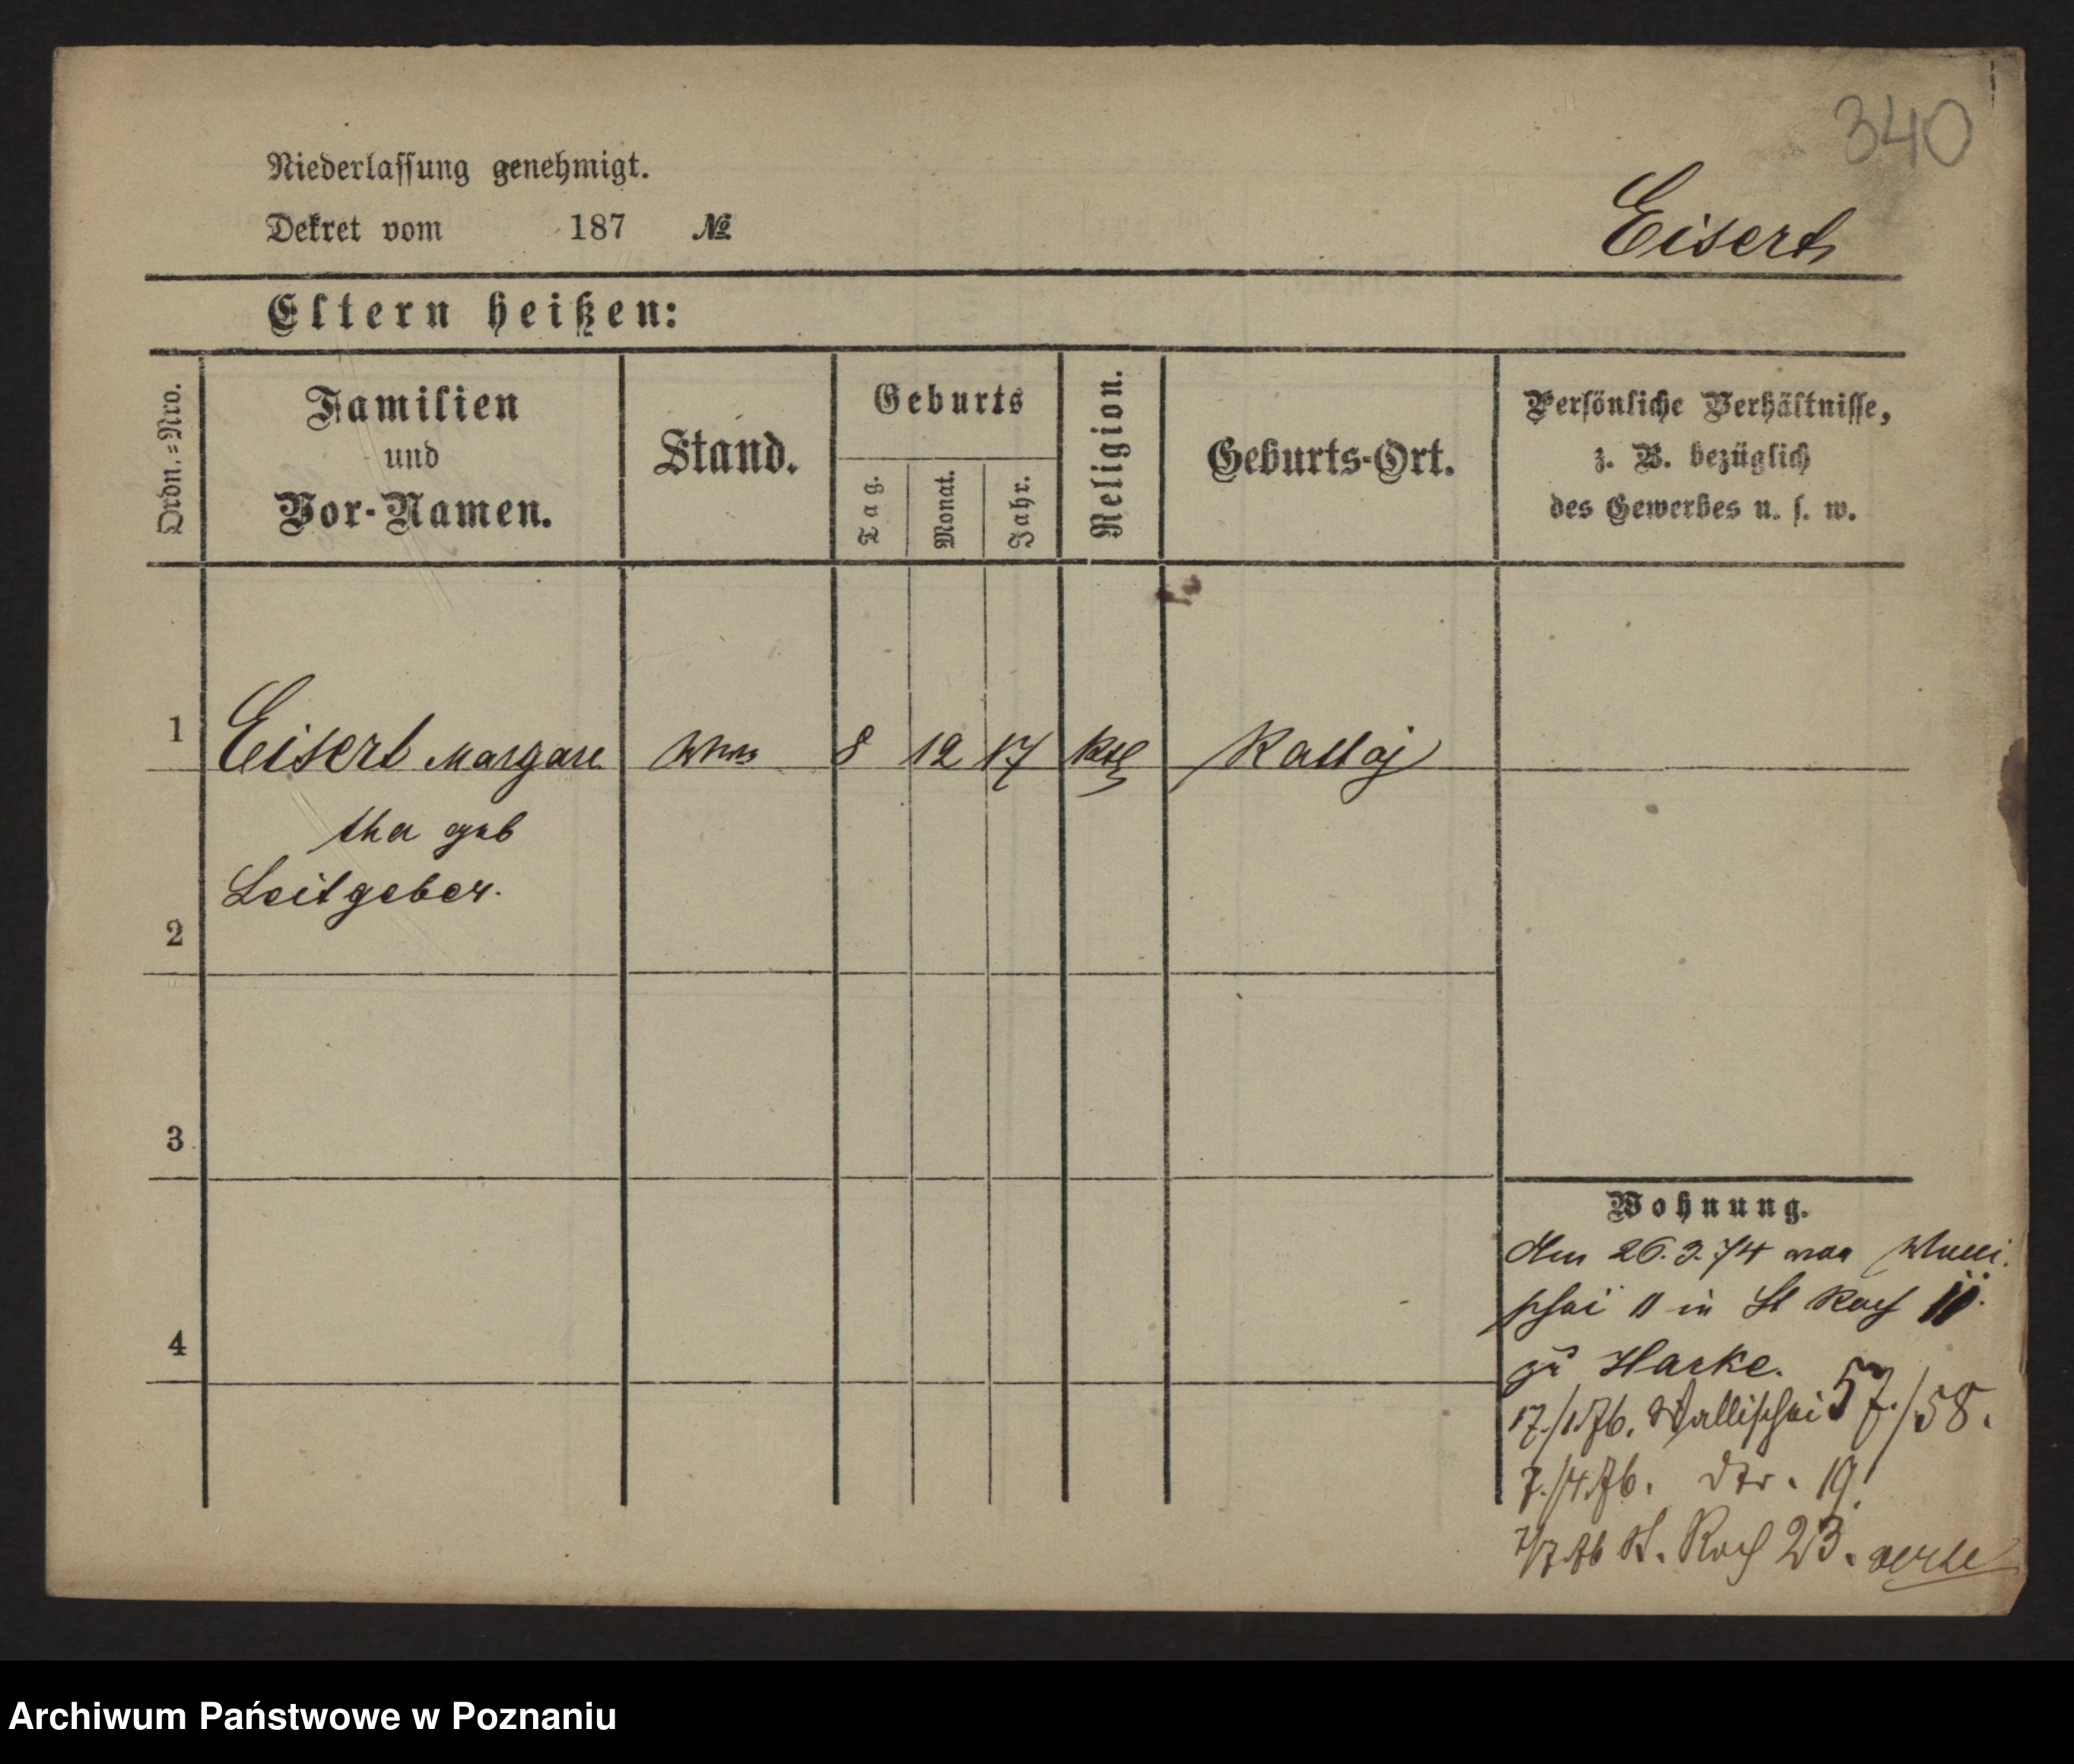 340
Niederlassung genehmigt.
Dekret vom 187 №
Eisert
Eltern heißen:
Ordn.=Nro.
Familien
und
Vor-Namen.
Stand.
Geburts
Tag.
Monat.
Jahr.
Religion.
Geburts-Ort.
Persönliche Verhältnisse,
z. B. bezüglich
des Gewerbes u. s. w.
1 Eisert Margare 8 12 17 Kth Rattaj
tha geb
Leitgeber.
2
3
4
Wohnung.
26.3.74 Walli
schei 11 in St Roch 11.
zu Harke.
17./1.76. Wallischei 57./58.
7./4.76. dto. 19.
7/7.76 St. Roch 23.
Archiwum Państwowe w Poznaniu